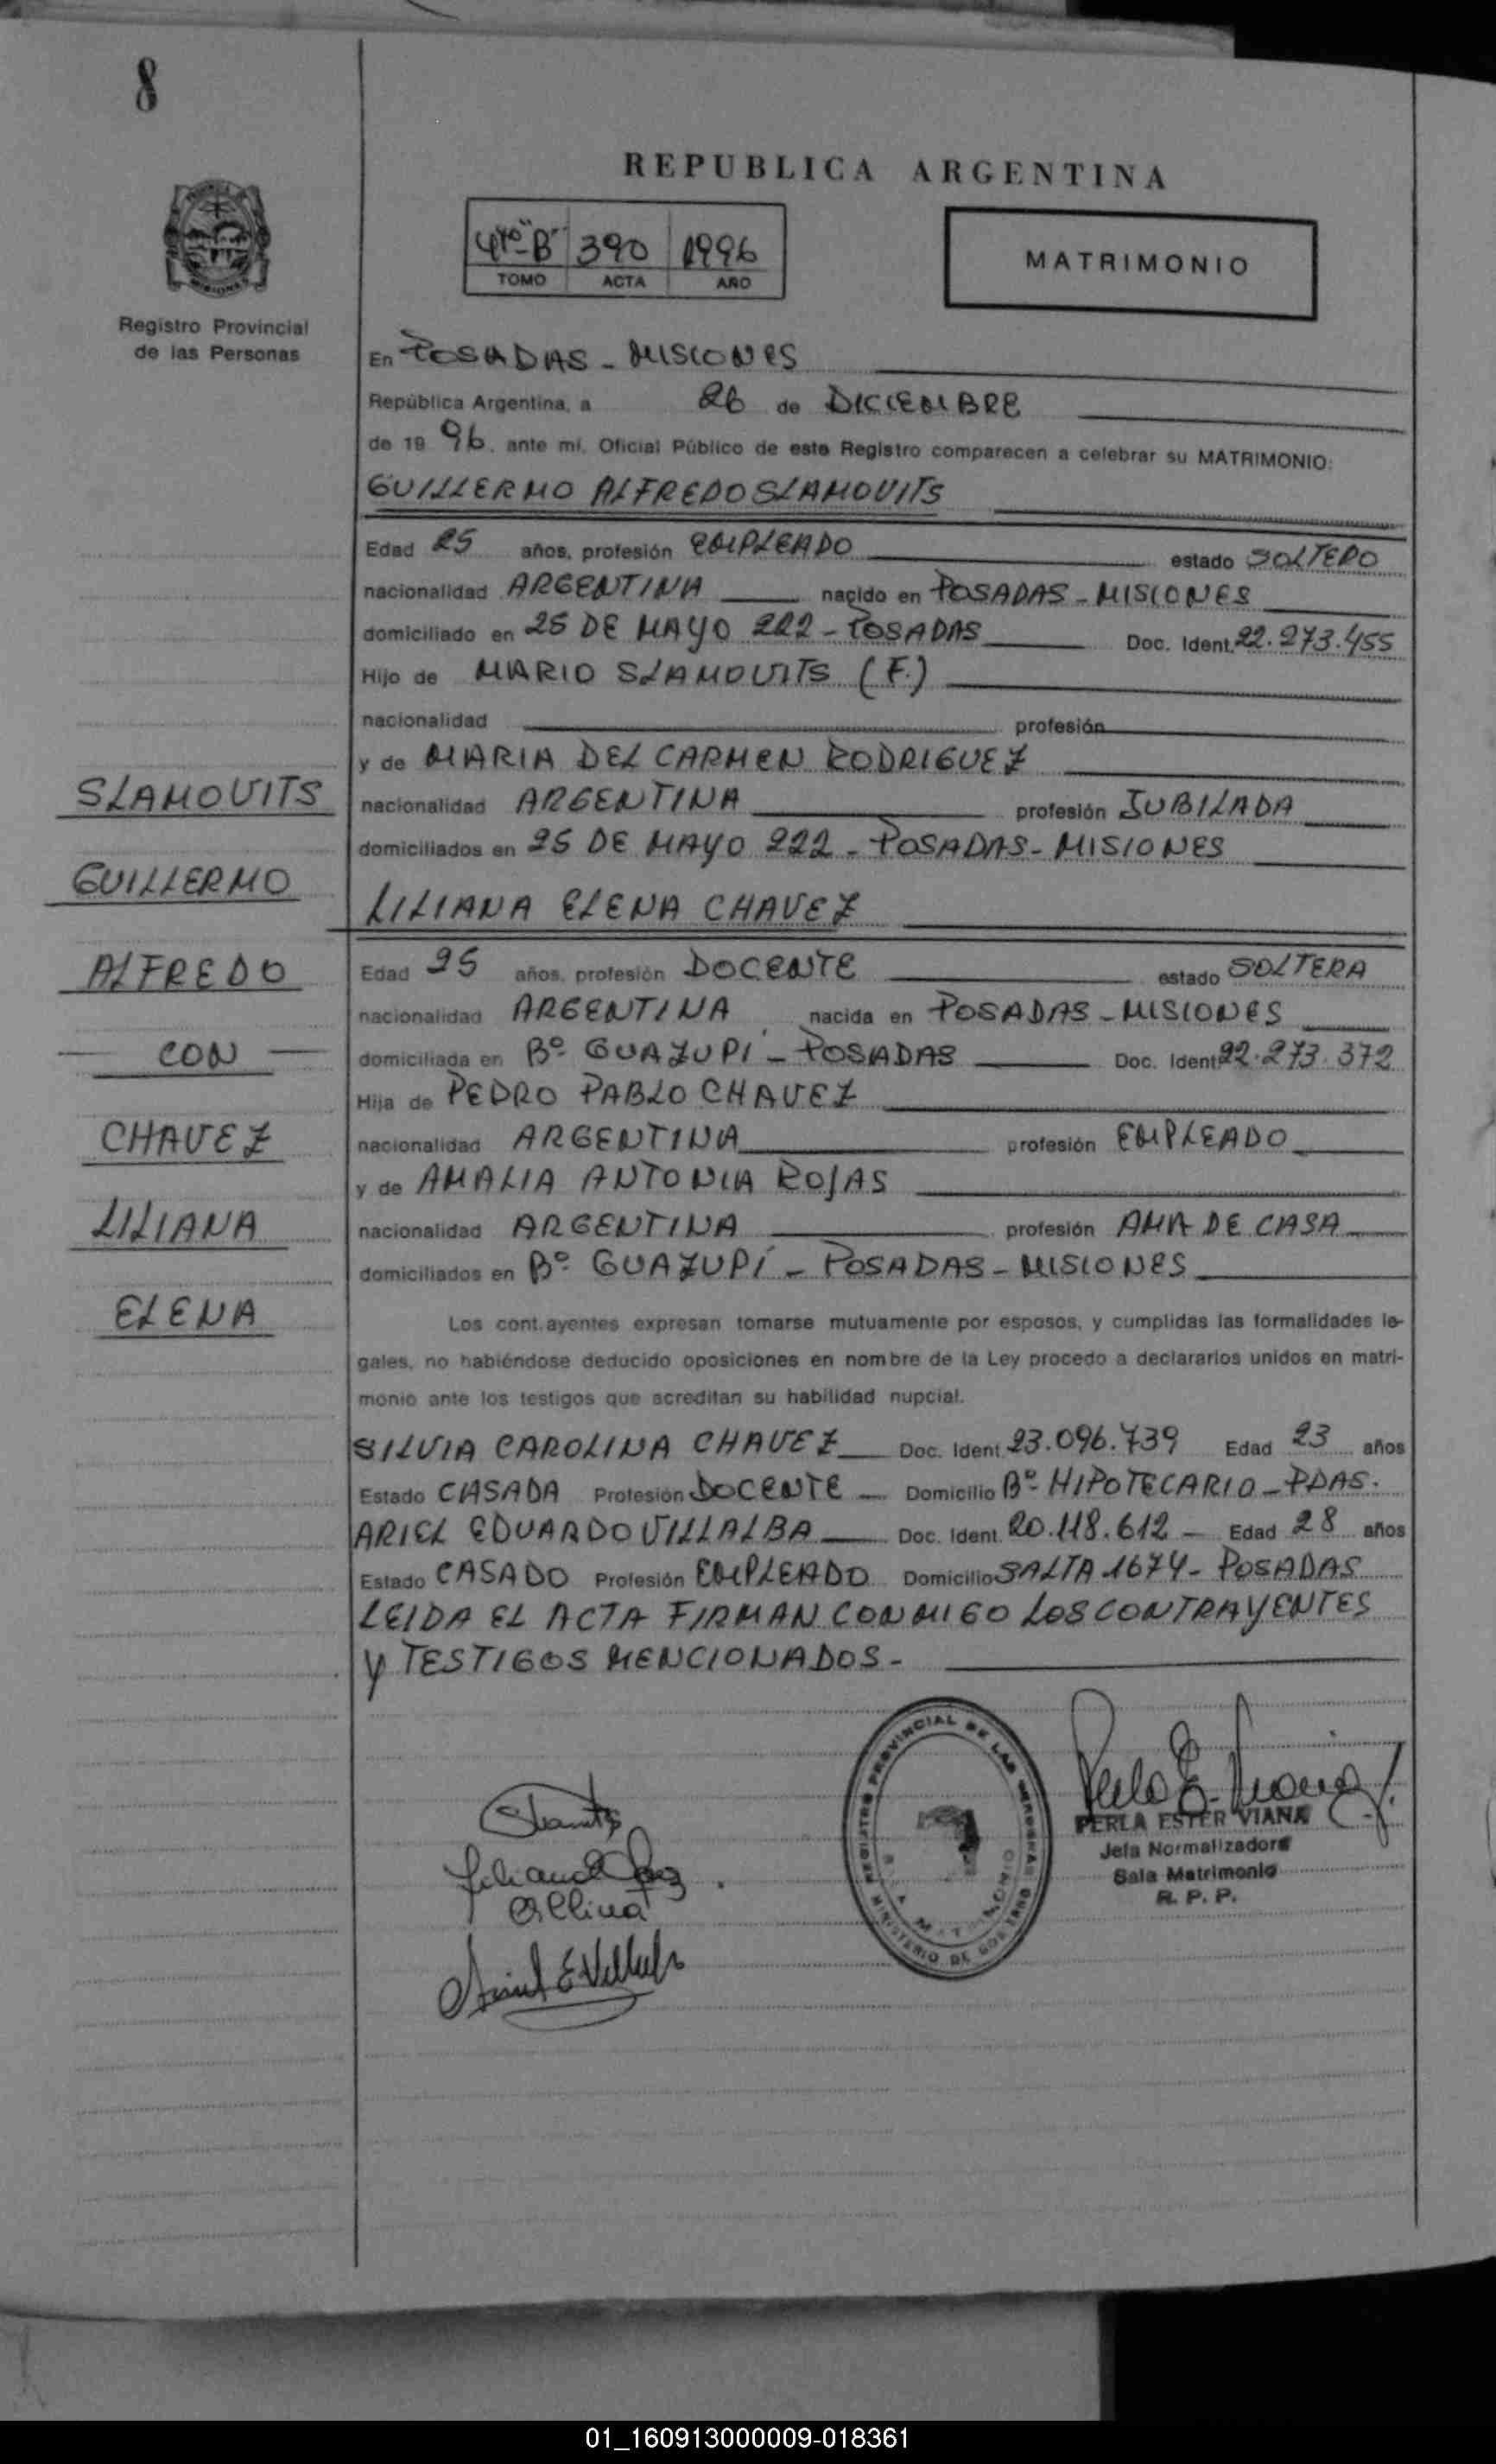 8
REPUBLICA ARGENTINA
4to "B" 390 1996
TOMO ACTA AÑO
MATRIMONIO
MISIONES
Registro Provincial
de las Personas
En POSADAS - MISIONES
República Argentina, a 26 de DICIEMBRE
de 19 96. ante mí, Oficial Público de este Registro comparecen a celebrar su MATRIMONIO:
GUILLERMO ALFREDO SLAMOVITS
Edad 25 años, profesión EMPLEADO estado SOLTERO
nacionalidad ARGENTINA nacido en POSADAS - MISIONES
domiciliado en 25 DE MAYO 222 - POSADAS Doc. Ident. 22.273.455
Hijo de MARIO SLAMOVITS (F.)
nacionalidad profesión
y de MARIA DEL CARMEN RODRIGUEZ
nacionalidad ARGENTINA profesión JUBILADA
domiciliados en 25 DE MAYO 222 - POSADAS - MISIONES
LILIANA ELENA CHAVEZ
Edad 25 años, profesión DOCENTE estado SOLTERA
nacionalidad ARGENTINA nacida en POSADAS - MISIONES
domiciliada en Bº GUAZUPI - POSADAS Doc. Ident 22.273.372
Hija de PEDRO PABLO CHAVEZ
nacionalidad ARGENTINA profesión EMPLEADO
y de AMALIA ANTONIA ROJAS
nacionalidad ARGENTINA profesión AMA DE CASA
domiciliados en Bº GUAZUPÍ - POSADAS - MISIONES
SLAMOVITS
GUILLERMO
ALFREDO
CON
CHAVEZ
LILIANA
ELENA
Los cont.ayentes expresan tomarse mutuamente por esposos, y cumplidas las formalidades le-
gales, no habiéndose deducido oposiciones en nombre de la Ley procedo a declararlos unidos en matri-
monio ante los testigos que acreditan su habilidad nupcial.
SILVIA CAROLINA CHAVEZ Doc. Ident 23.096.739 Edad 23 años
Estado CASADA Profesión DOCENTE Domicilio Bº HIPOTECARIO - PDAS.
ARIEL EDUARDO VILLALBA Doc. Ident. 20.118.612 - Edad 28 años
Estado CASADO Profesión EMPLEADO Domicilio SALTA 1674 - POSADAS
LEIDA EL ACTA FIRMAN CONMIGO LOS CONTRAYENTES
Y TESTIGOS MENCIONADOS -
REGISTRO PROVINCIAL DE LAS PERSONAS
MINISTERIO DE GOBIERNO
PERLA ESTER VIANA
Jefa Normalizadora
Sala Matrimonio
R. P. P.
Ariel E Villalba
01_160913000009-018361